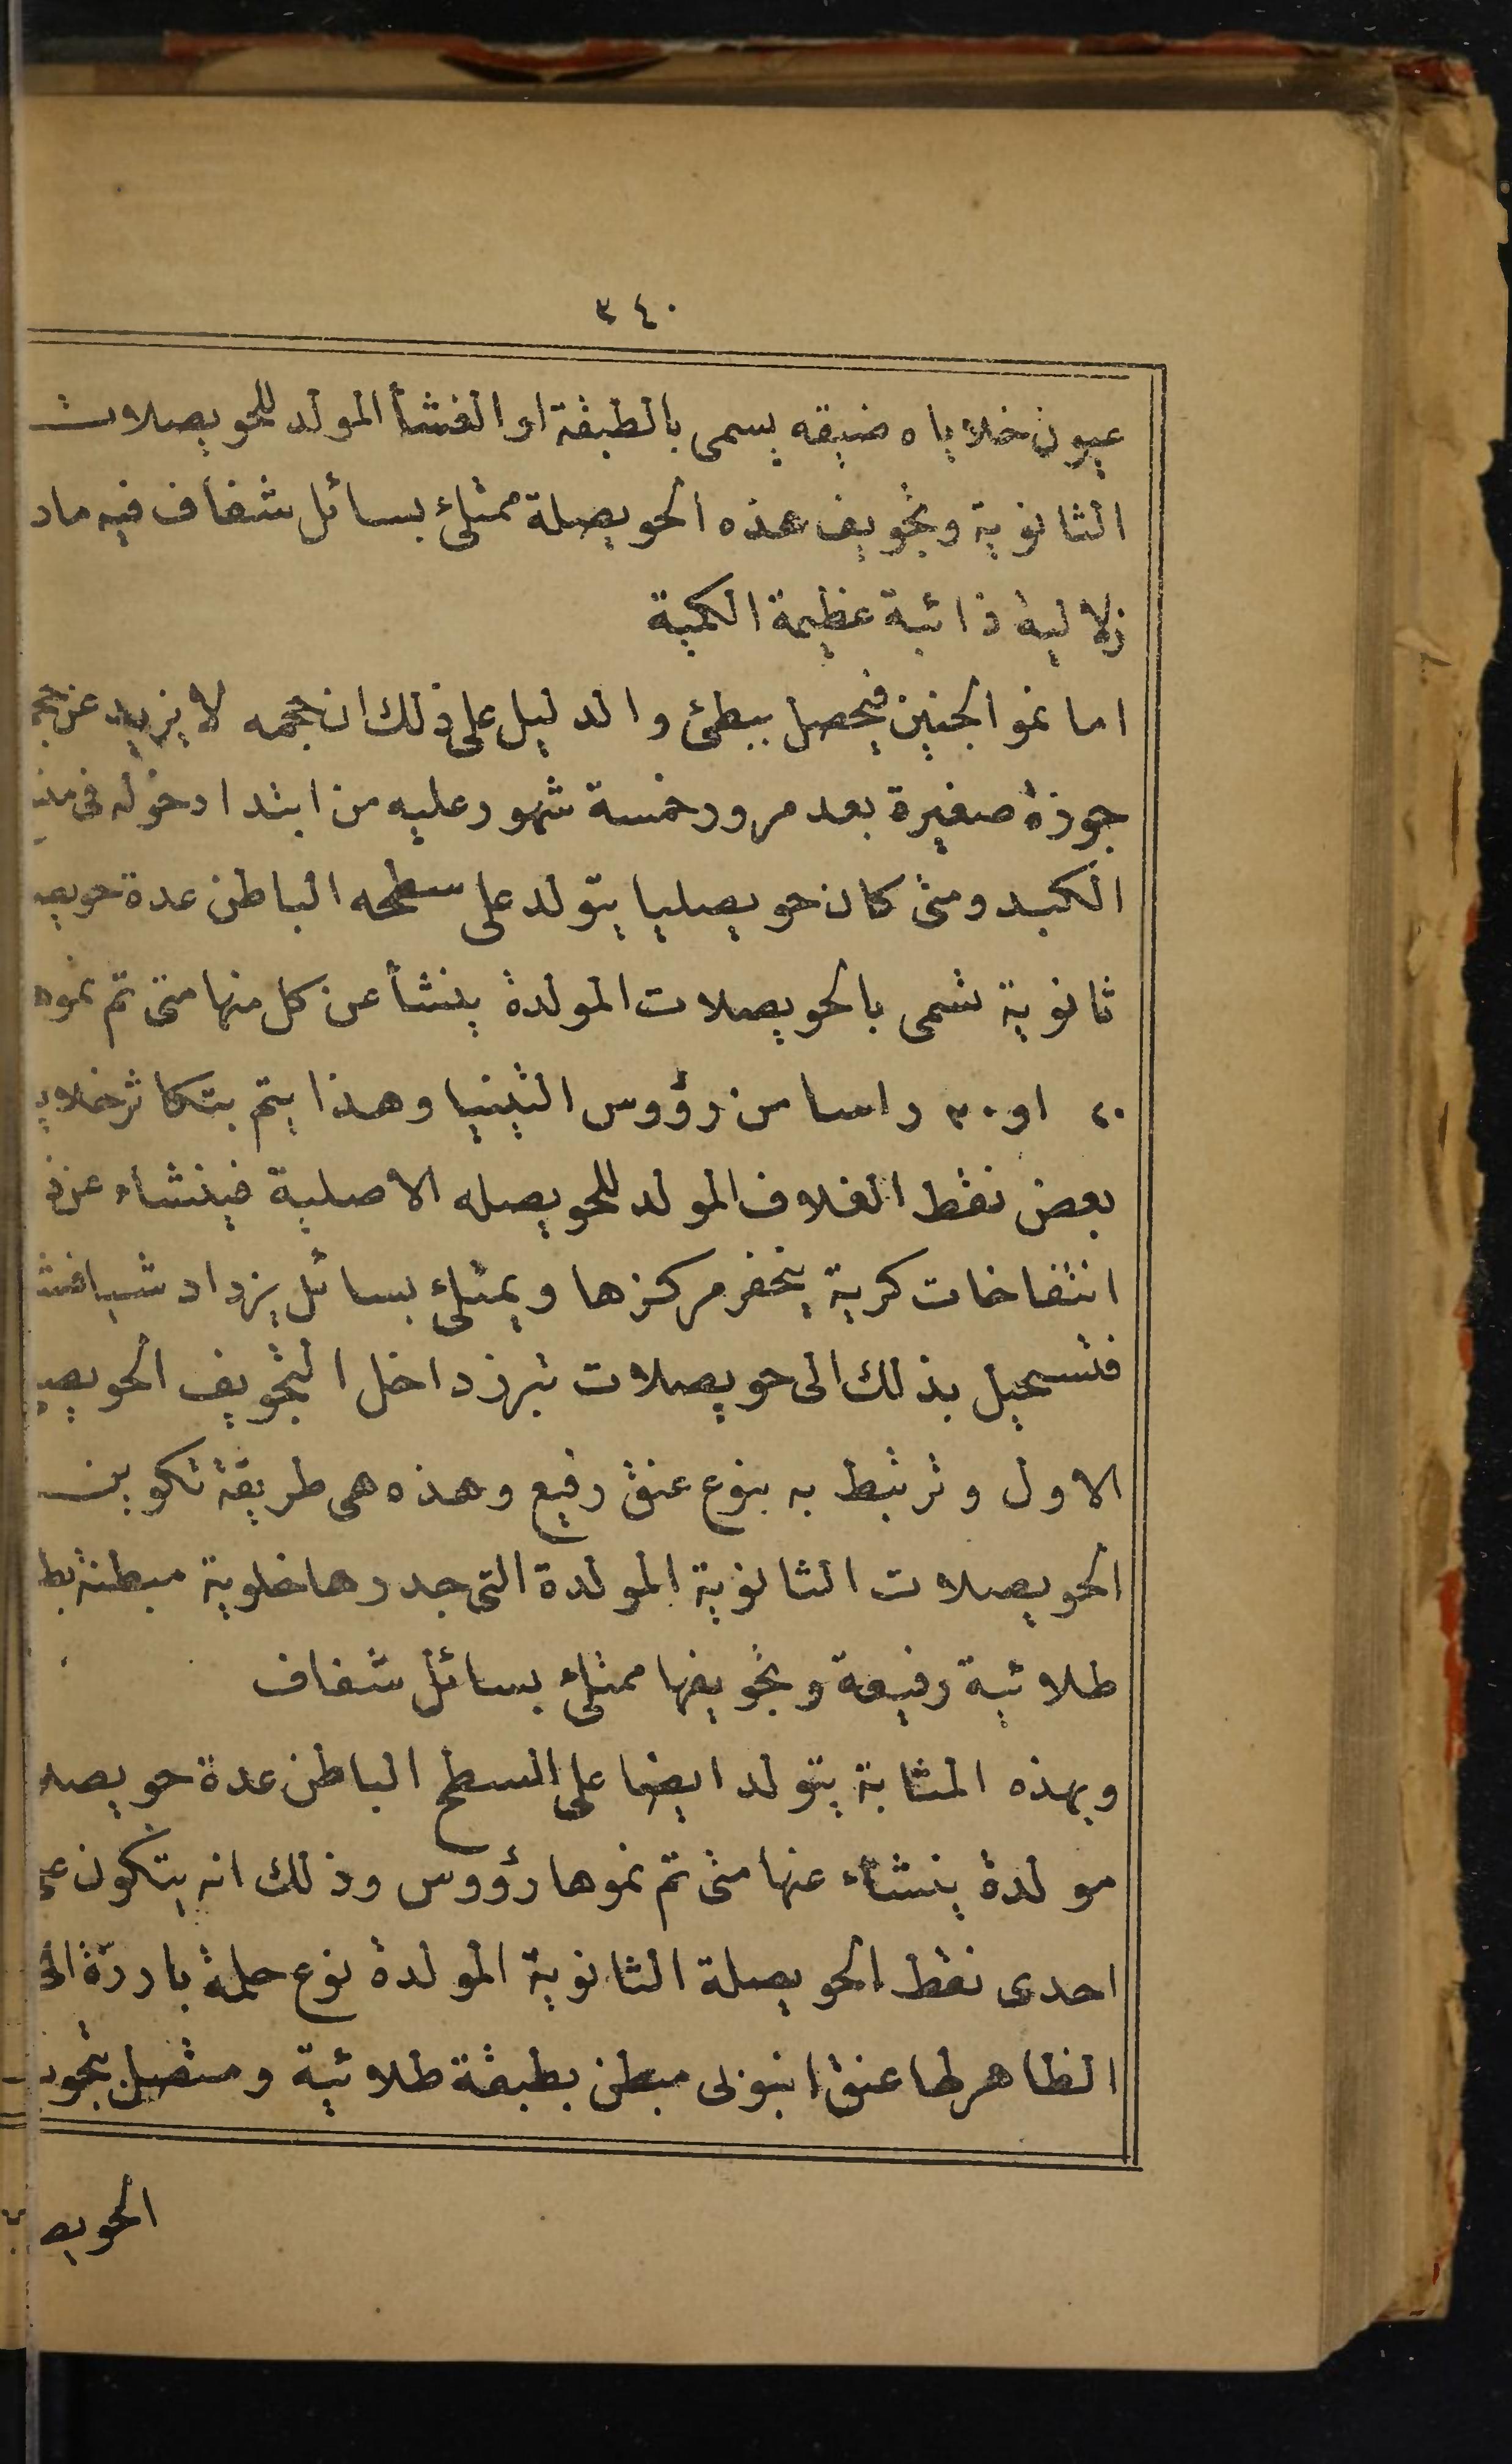 ٣٤٠
عيون خلاياه ضيقه يسمى بالطبقة او الغشأ المولد للحويصلات
الثانوية وتجويف هذه الحويصلة ممتلئ بسائل شفاف فيه ماد
زلاليه ذائبة عظيمة الكمية
اما نمو الجنين فيحصل ببطئ والدليل على ذلك ان حجمه لا يزيد عن حجم
جوزة صغيرة بعد مرور خمسة شهور عليه من ابتدا دخوله فى
الكبد ومتى كان حويصليا يتولد على سطحه الباطن عدة حويصه
ثانوية تسمى بالحويصلات المولدة ينشأ عن كل منها متى تم نموه
٢٠ او ٣٠ راسا من رؤوس التينيا وهذا يتم بتكاثر خلايا
بعض نقط الغلاف المولد للحويصله الاصلية فينشاء عن ذ
انتفاخات كرية يتحفر مركزها ويمتلئ بسائل يزداد شيا فش
فتستحيل بذلك الى حويصلات تبرز داخل التجويف الحويصى
الاول وترتبط به بنوع عنق رفيع وهذه هى طريقة تكوين
الحويصلات الثانوية المولدة التى جدرها خلوية مبطنة بط
طلائية رفيعة وتجويفها ممتلئ بسائل شفاف
وبهذه المثابة يتولد ايضا على السطح الباطن عدة حويصلا
مولدة ينشاء عنها متى تم نموها رؤوس وذلك انه يتكون على
احدى نقط الحويصلة الثانوية المولدة نوع حلمة بارزة الى
الظاهر لها عنق انبوبى مبطن بطبقة طلائية ومتصل بتجويف
الحويص